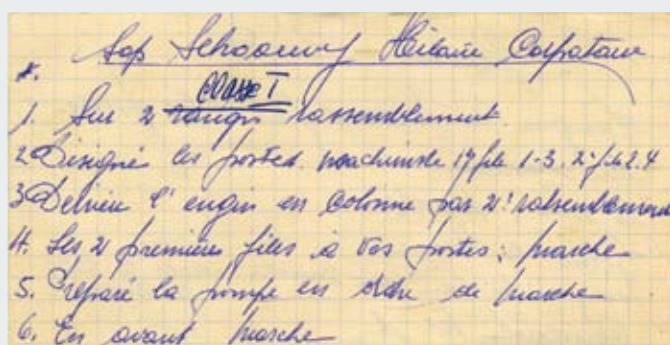 Sap Schoorung Hilaire Corpataux
Classe I
1. Sur 2 rangs rassemblement
2 Désigné les postes machiniste 1re file 1-3. 2e file 2.4
3 Derrière l'engin en colonne par 2! rassemblement
4. Les 2 première files à vos postes: marche
5. Préparé la pompe en ordre de marche
6. En avant marche